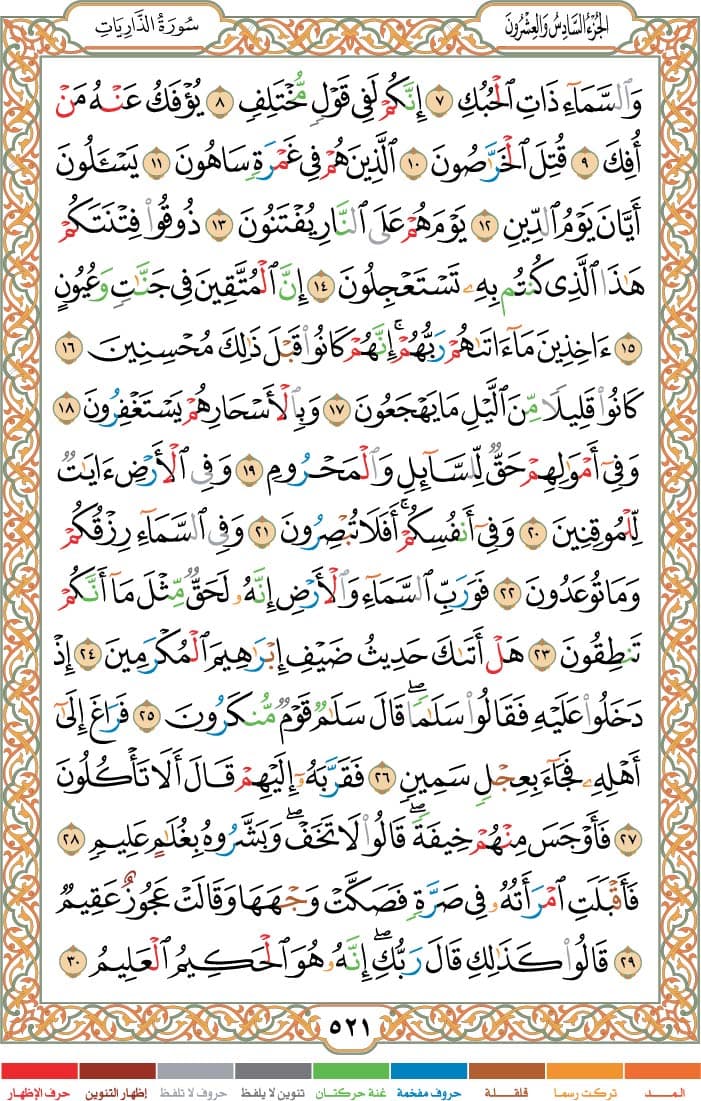 الجُزْءُ السَّادِسُ وَالعِشْرُونَ
سُورَةُ الذَّارِيَاتِ
وَٱلسَّمَآءِ ذَاتِ ٱلْحُبُكِ ٧ إِنَّكُمْ لَفِى قَوْلٍ مُّخْتَلِفٍ ٨ يُؤْفَكُ عَنْهُ مَنْ
أُفِكَ ٩ قُتِلَ ٱلْخَرَّٰصُونَ ١٠ ٱلَّذِينَ هُمْ فِى غَمْرَةٍ سَاهُونَ ١١ يَسْـَٔلُونَ
أَيَّانَ يَوْمُ ٱلدِّينِ ١٢ يَوْمَ هُمْ عَلَى ٱلنَّارِ يُفْتَنُونَ ١٣ ذُوقُوا۟ فِتْنَتَكُمْ
هَٰذَا ٱلَّذِى كُنتُم بِهِۦ تَسْتَعْجِلُونَ ١٤ إِنَّ ٱلْمُتَّقِينَ فِى جَنَّٰتٍ وَعُيُونٍ
١٥ ءَاخِذِينَ مَآ ءَاتَىٰهُمْ رَبُّهُمْ ۚ إِنَّهُمْ كَانُوا۟ قَبْلَ ذَٰلِكَ مُحْسِنِينَ ١٦
كَانُوا۟ قَلِيلًا مِّنَ ٱلَّيْلِ مَا يَهْجَعُونَ ١٧ وَبِٱلْأَسْحَارِ هُمْ يَسْتَغْفِرُونَ ١٨
وَفِىٓ أَمْوَٰلِهِمْ حَقٌّ لِّلسَّآئِلِ وَٱلْمَحْرُومِ ١٩ وَفِى ٱلْأَرْضِ ءَايَٰتٌ
لِّلْمُوقِنِينَ ٢٠ وَفِىٓ أَنفُسِكُمْ ۚ أَفَلَا تُبْصِرُونَ ٢١ وَفِى ٱلسَّمَآءِ رِزْقُكُمْ
وَمَا تُوعَدُونَ ٢٢ فَوَرَبِّ ٱلسَّمَآءِ وَٱلْأَرْضِ إِنَّهُۥ لَحَقٌّ مِّثْلَ مَآ أَنَّكُمْ
تَنطِقُونَ ٢٣ هَلْ أَتَىٰكَ حَدِيثُ ضَيْفِ إِبْرَٰهِيمَ ٱلْمُكْرَمِينَ ٢٤ إِذْ
دَخَلُوا۟ عَلَيْهِ فَقَالُوا۟ سَلَٰمًا ۖ قَالَ سَلَٰمٌ قَوْمٌ مُّنكَرُونَ ٢٥ فَرَاغَ إِلَىٰٓ
أَهْلِهِۦ فَجَآءَ بِعِجْلٍ سَمِينٍ ٢٦ فَقَرَّبَهُۥٓ إِلَيْهِمْ قَالَ أَلَا تَأْكُلُونَ
٢٧ فَأَوْجَسَ مِنْهُمْ خِيفَةً ۖ قَالُوا۟ لَا تَخَفْ ۖ وَبَشَّرُوهُ بِغُلَٰمٍ عَلِيمٍ ٢٨
فَأَقْبَلَتِ ٱمْرَأَتُهُۥ فِى صَرَّةٍ فَصَكَّتْ وَجْهَهَا وَقَالَتْ عَجُوزٌ عَقِيمٌ
٢٩ قَالُوا۟ كَذَٰلِكِ قَالَ رَبُّكِ ۖ إِنَّهُۥ هُوَ ٱلْحَكِيمُ ٱلْعَلِيمُ ٣٠
٥٢١
المـــد تركت رسما قلقلة حروف مفخمة غنة حركتان تنوين لا يلفظ حروف لا تلفظ إظهار التنوين حرف الإظهار